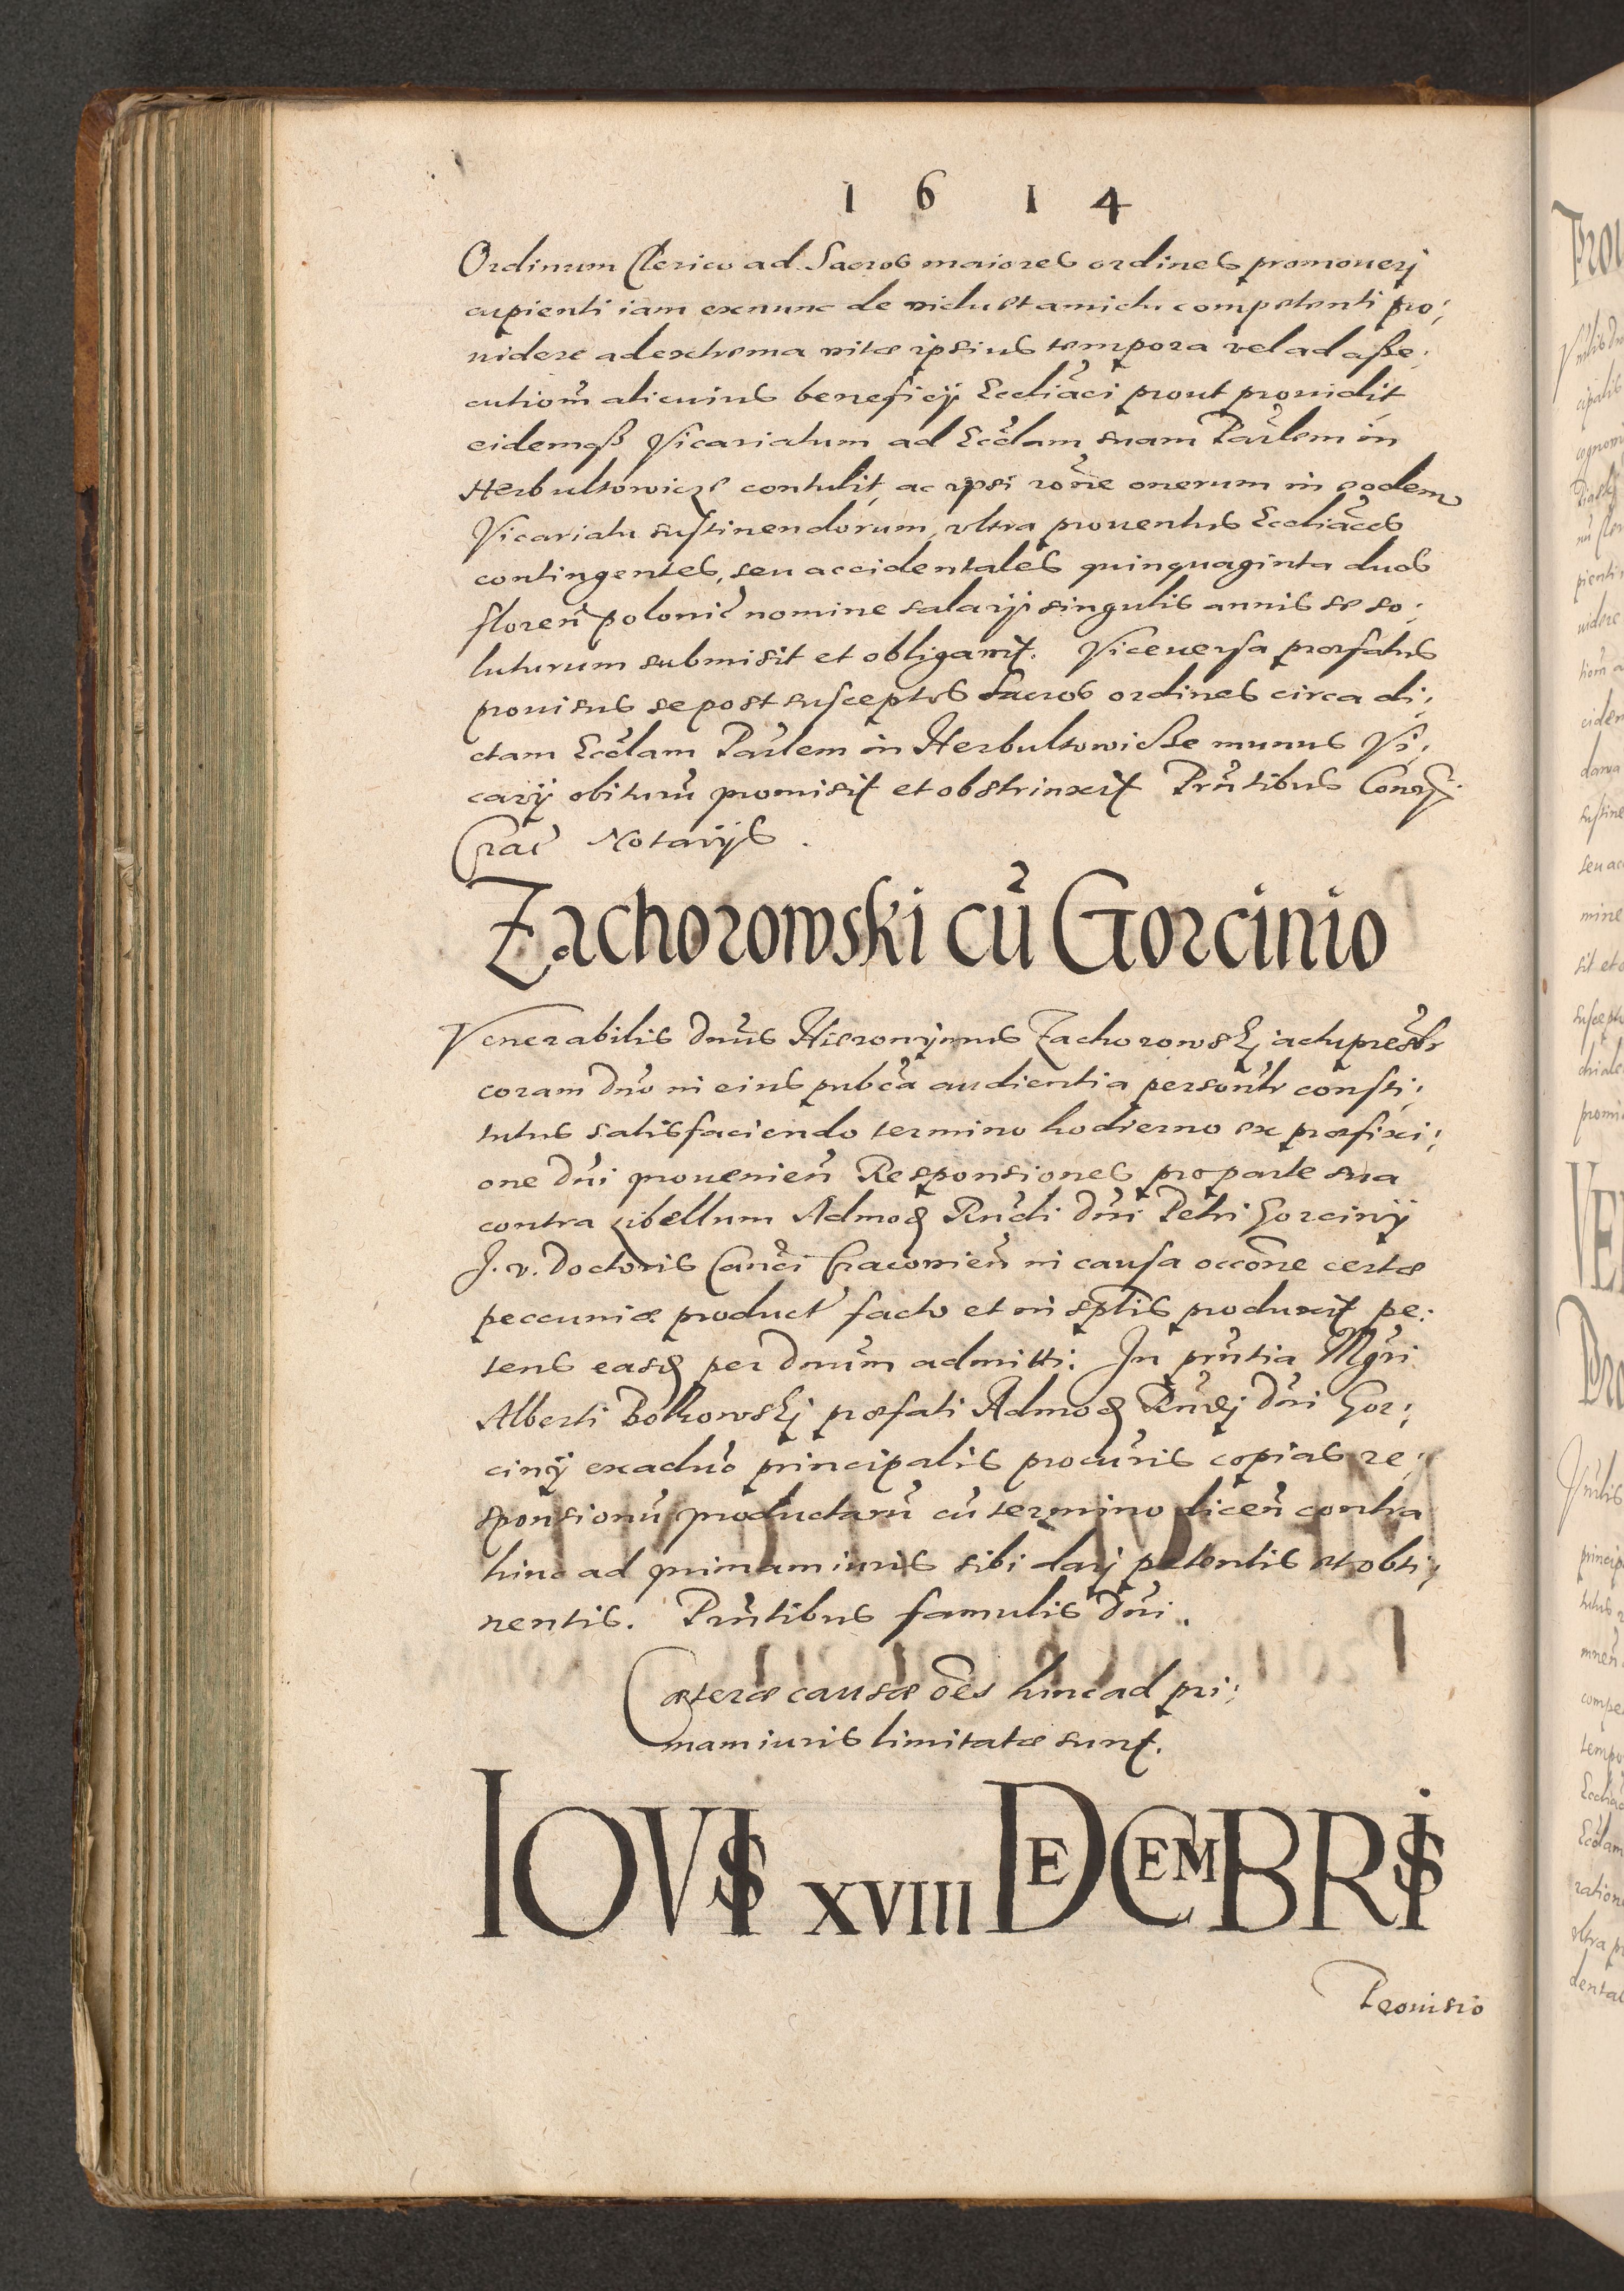 1 6 1 4
Ordinum Clerico ad Sacros maiores ordines promoueri
cupienti iam exnunc de victu et amictu competenti pro:
uidere ad extrema vitæ ipsius tempora vel ad asse:
cutiom̃ alicuius beneficij Eccliãci prout prouidit
eidemqȝ Vicariatum ad Ecclãm suam Parlem in
Herbultowicze contulit, ac ipsi rõne onerum in eodem
Vicariatu sustinendorum, vltra prouentus Eccliãcos
contingentes, seu accidentales quinquaginta duos
floreñ polonic̃ nomine salarij singulis annis se so:
luturum submisit et obligauit. Viceuersa præfatus
prouisus se post susceptos Sacros ordines circa di:
ctam Ecclãm Parlem in Herbultowicze munus Vi:
carij obiturũ promisit et obstrinxit Prñtibus Consȳ
Crac̃ Notarijs.
Zachorowski cũ Gorcinio
Venerabilis Dnũs Hieronÿmus Zachorowskj actu presbr̃
coram Dnõ in eius pubcã audientia personlr̃ consti:
tutus satisfaciendo termino hodierno ex præfixi:
one Dnĩ proueniẽn Responsiones pro parte sua
contra Libellum Admoȡ Rnđi Dnĩ Petri Gorcinij
J. v. Doctoris Canci Cracouieñ in causa occõne certæ
peccuniæ product̃ facto et in sptis produxit pe:
tens easȡ per Dnũm admitti. In prñtia Mgr̃i
Alberti Bolkowskj præfati Admoȡ Rnđj Dnĩ Gor:
cinÿ exaduõ principalis procuris copias re:
sponsionũ productarũ cũ termino dicẽn contra
hinc ad primam iuris sibi darj petentis et obti:
nentis. Prñtibus famulis Dnĩ.
Cæteræ causæ oẽs hinc ad pri:
mam iuris limitatæ sunt.
IOVIS XVIII DECEMBRIS
Prouisio